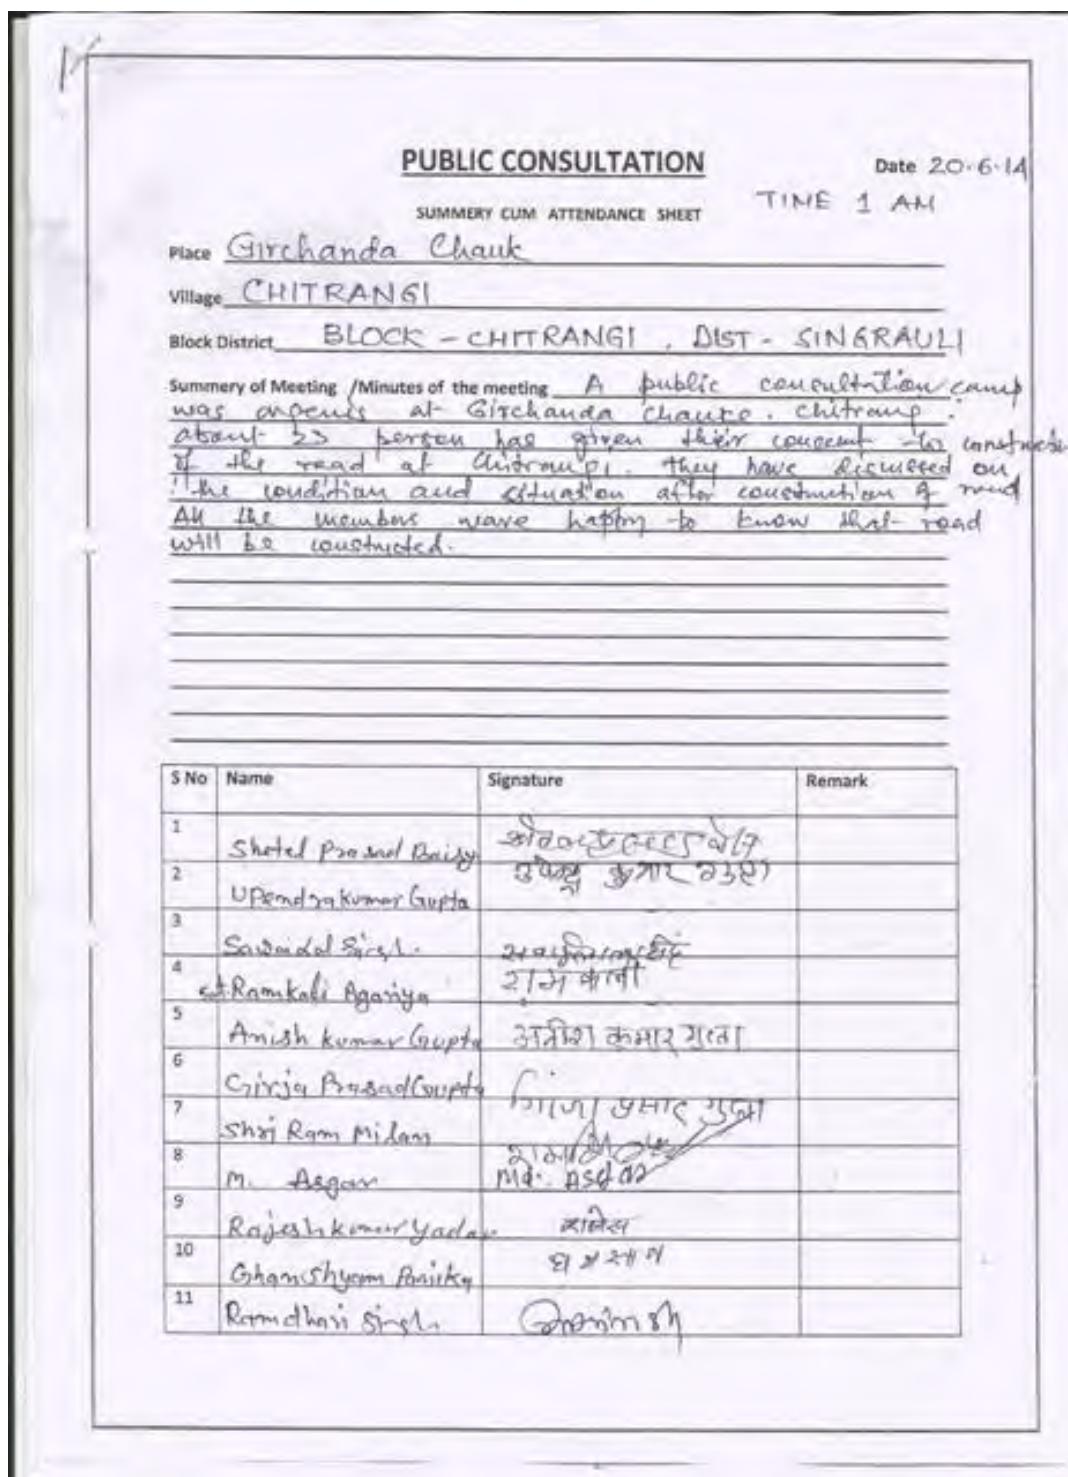 PUBLIC CONSULTATION
Date 20-6-14
TIME 1 AM
SUMMERY CUM ATTENDANCE SHEET
Place Girchanda Chauk
Village CHITRANGI
Block District BLOCK - CHITRANGI , DIST - SINGRAULI
Summery of Meeting /Minutes of the meeting A public consultation camp
was at Girchanda
about 23 person has given their concent to
of the road at Chitrangi. they have discussed on
the condition and situation after construction of road
All the members wave happy to know that road
will be constructed.
S No Name Signature Remark
1 Shotel Prasad Baisy
2 Upendra kumar Gupta उपेन्द्र कुमार गुप्ता
3 Singh.
4 Ramkali Agariya राम कली
5 Anish kumar Gupta अनीश कुमार गुप्ता
6 Girja Prasad Gupta गिरिजा प्रसाद गुप्ता
7 Shri Ram Milan
8 M. Asgar Md. Asgar
9 Rajesh kumar Yadav
10 Ghamshyam Panika
11 Ramdhari Singh